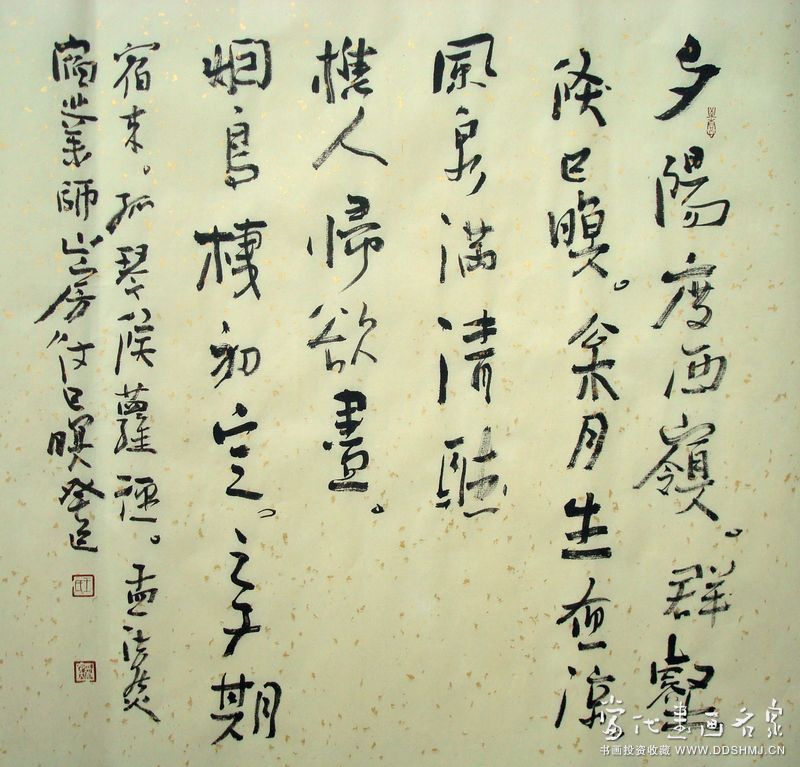 夕陽度西嶺。群壑
倏已暝。枩月生夜涼
風泉滿清聽
樵人歸欲盡。
烟鳥棲初定。之子期
宿来。孤琴候蘿徑。孟浩然
宿業師山房
當代書画名家
书画投资收藏 WWW.DDSHMJ.CN